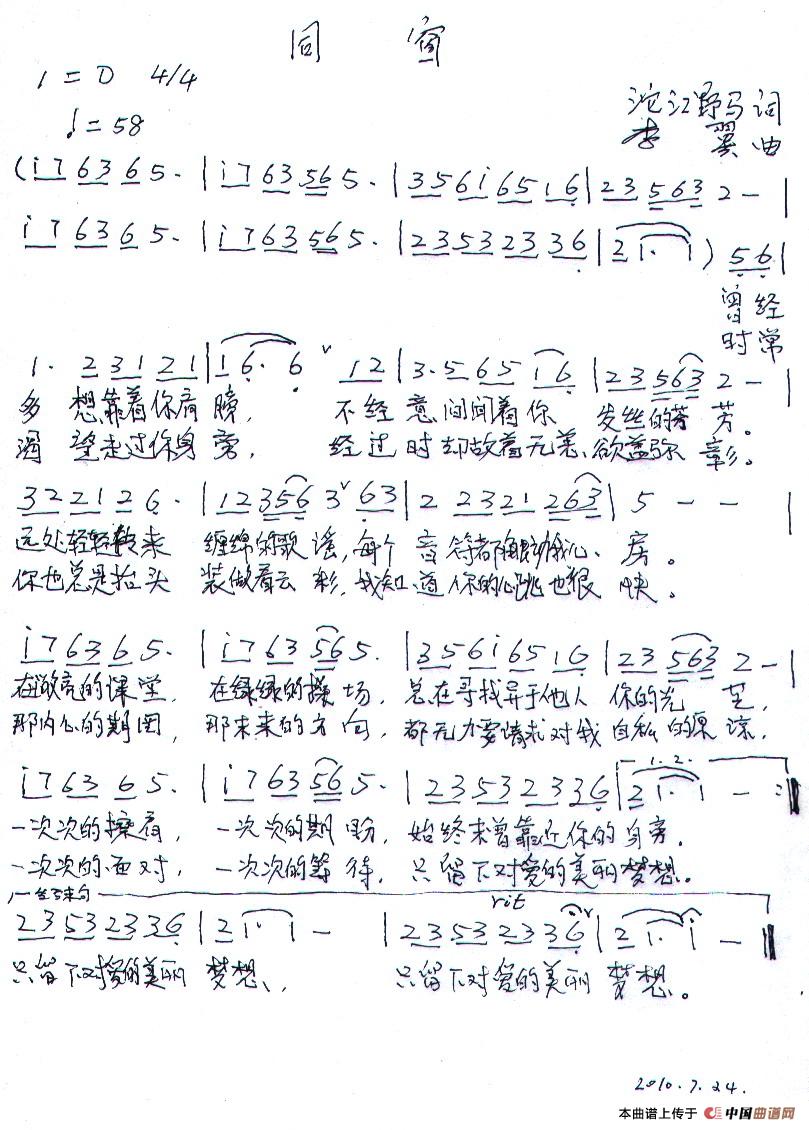 同 窗
1 = D 4/4
♩= 58
沱江野马 词
李 翼 曲
( i 7 6 3 6 5 · | i 7 6 3 5 6 5 · | 3 5 6 i 6 5 1 6 | 2 3 5 6 3 2 — |
i 7 6 3 6 5 · | i 7 6 3 5 6 5 · | 2 3 5 3 2 3 3 6 | 2 1 · 1 ) 5 6 |
曾经
时常
1 · 2 3 1 2 1 | 1 6 · 6 ˅ 1 2 | 3 · 5 6 5 1 6 | 2 3 5 6 3 2 — |
多 想靠着你肩 膀, 不经 意间闻着你 发丝的芬 芳。
渴 望走过你身 旁, 经过 时却故着无恙、欲盖弥 彰。
3 2 2 1 2 6 · | 1 2 3 5 6 3 ˅ 6 3 | 2 2 3 2 1 2 6 3 | 5 — — |
远处轻轻转来 缠绵的歌 谣, 每个 音 符都 我心 房。
你也总是抬头 装做看云 彩, 我知 道 你的心跳也很 快。
i 7 6 3 6 5 · | i 7 6 3 5 6 5 · | 3 5 6 i 6 5 1 6 | 2 3 5 6 3 2 — |
在敞亮的课堂, 在绿绿的操 场, 总在寻找异于他人 你的光 芒,
那内心的 , 那未来的方 向, 都无力要请求对我 自私的原 谅,
1. 2.
i 7 6 3 6 5 · | i 7 6 3 5 6 5 · | 2 3 5 3 2 3 3 6 | 2 1 · 1 — :‖
一次次的擦肩, 一次次的期 盼, 始终未曾靠近你的身旁。
一次次的面对, 一次次的等 待, 只留下对爱的美丽梦想。
结束句 rit
2 3 5 3 2 3 3 6 | 2 1 · 1 — | 2 3 5 3 2 3 3 6 ˅ | 2 1 · i — ‖
只留下对爱的美丽 梦想、 只留下对爱的美丽 梦想。
2010.7.24.
本曲谱上传于 中国曲谱网